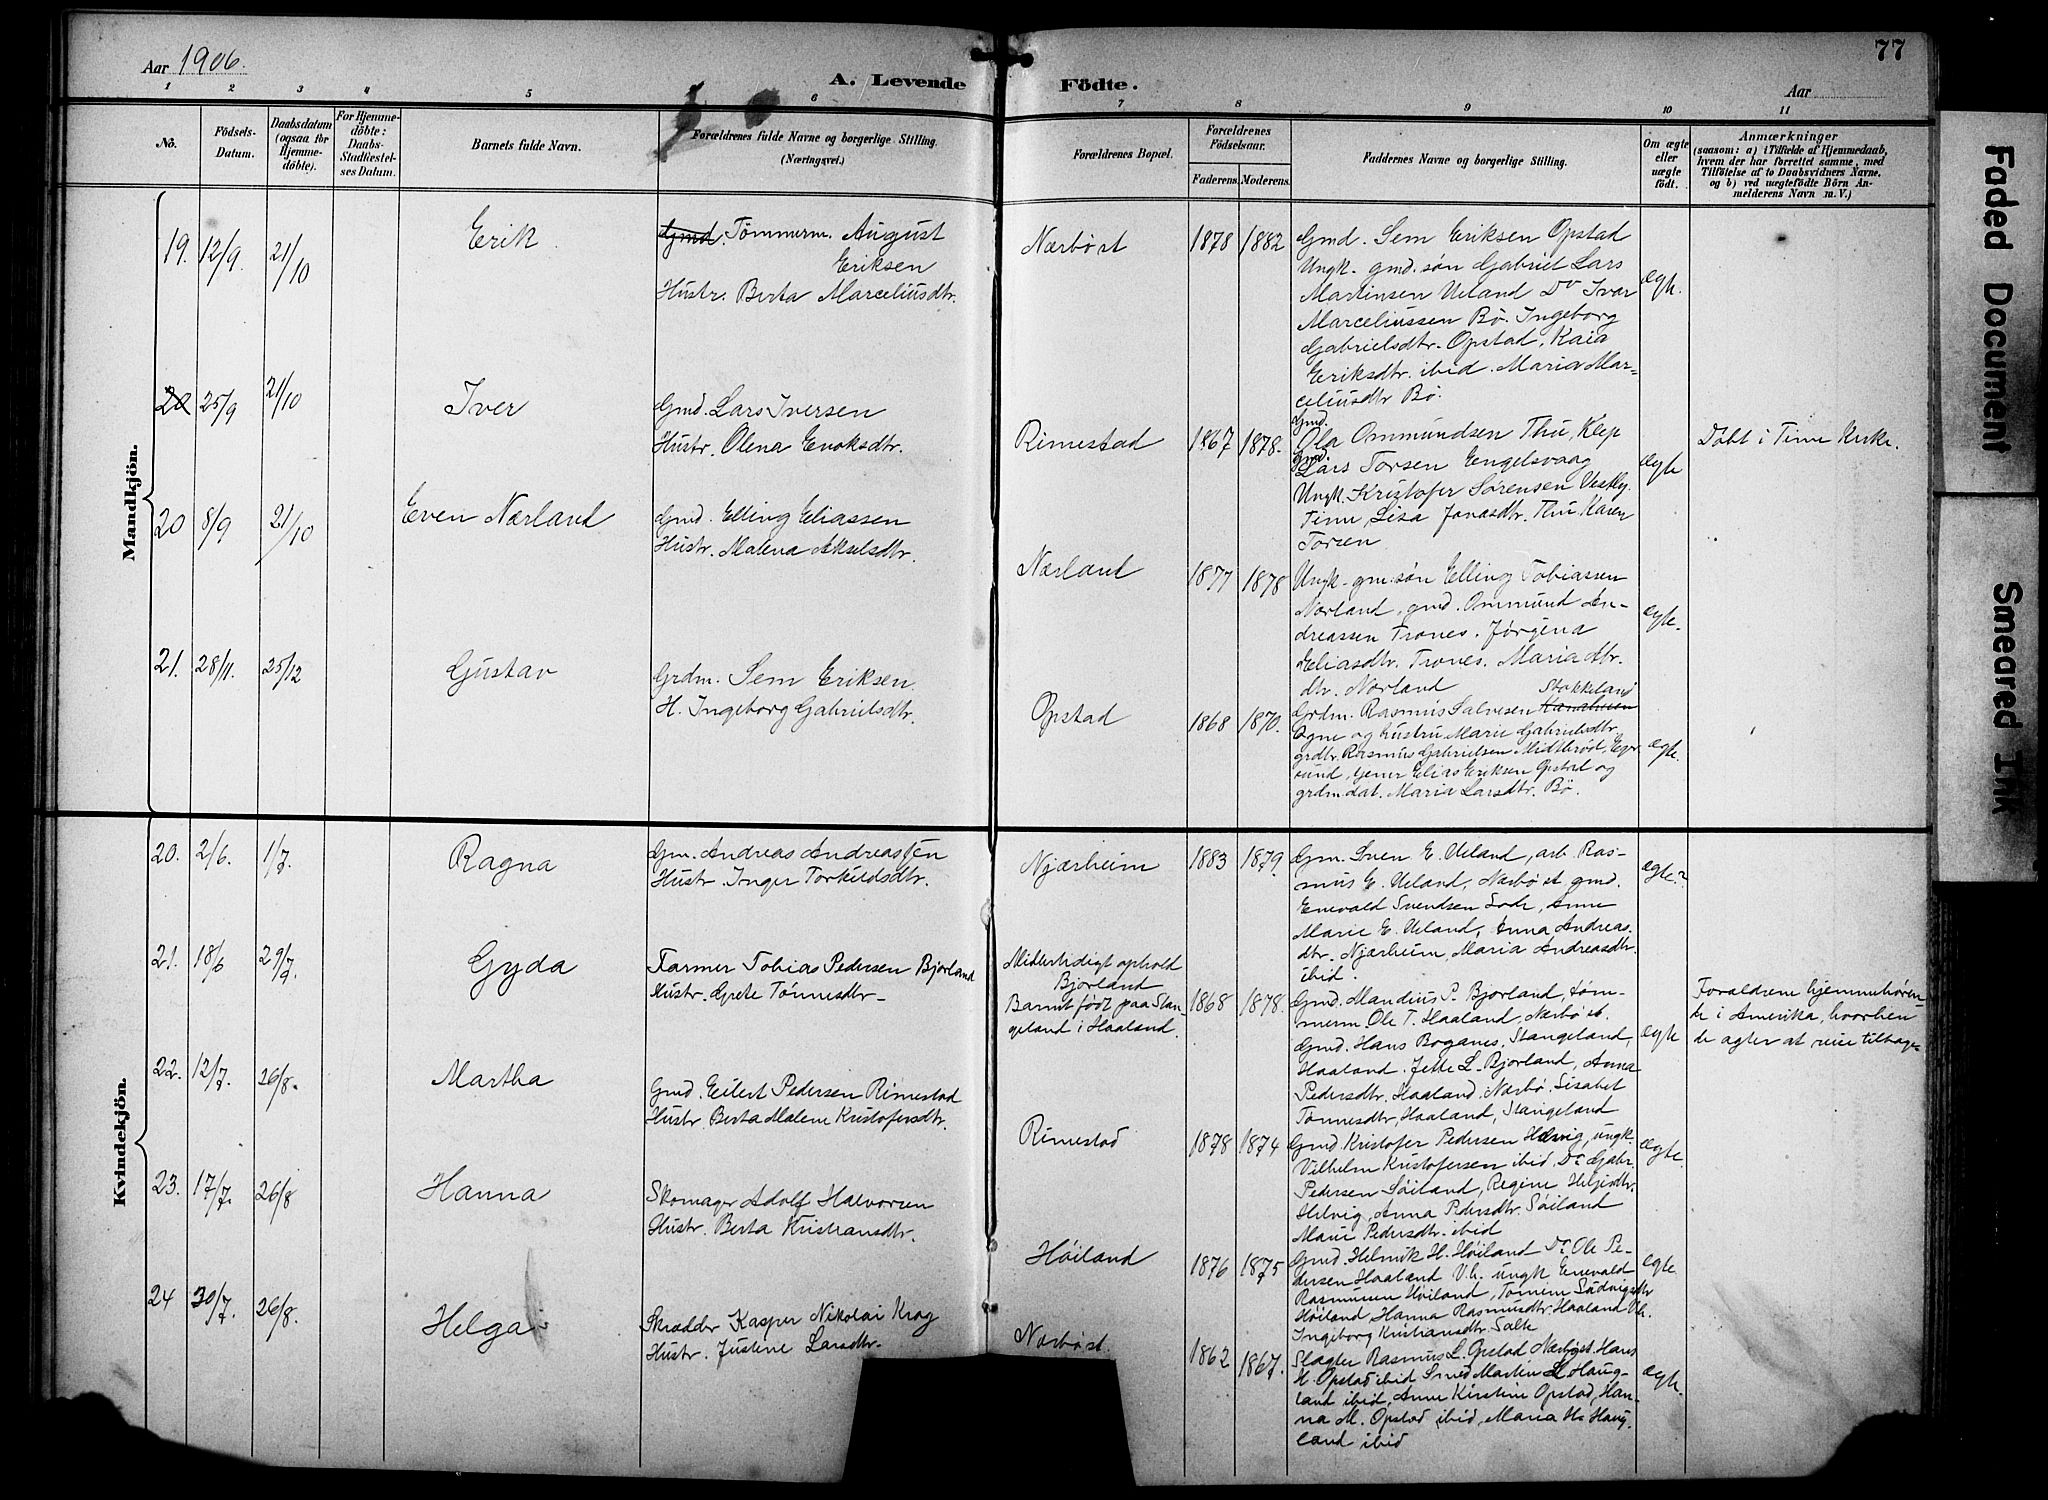 Aar 1906.
A. Levende Födte.
Aar
77
1 2 3 4 5 6 7 8 9 10 11
No.
Födsels-Datum.
Daabsdatum (ogsaa for Hjemme-döbte).
For Hjemme-döbte: Daabs-Stadfæstel-ses Datum.
Barnets fulde Navn.
Forældrenes fulde Navne og borgerlige Stilling. (Næringsvei.)
Forældrenes Bopæl.
Forældrenes Födselsaar.
Faderens. Moderens.
Faddernes Navne og borgerlige Stilling.
Om ægte eller uægte födt.
Anmærkninger
(saasom: a) i Tilfælde af Hjemmedaab,
hvem der har forrettet samme, med
Tilföielse af to Daabsvidners Navne,
og b) ved uægtefödte Börn An-
melderens Navn m. V.)
Mandkjön.
19. 12/9. 21/10 Erik
Gmd. Tømmerm. August
Eriksen
Hustr. Berta Marceliusdtr.
Nærbø st 1878 1882
Gmd. Sem Eriksen Opstad
Ungk. gmd. søn Gabriel Lars
Martinsen Ueland Do Ivar
Marceliussen Bø. Ingeborg
Gabrielsdtr. Opstad, Kaia
Eriksdtr. ibid. Maria Mar-
celiusdtr Bø.
ægte.
20 25/9 21/10 Iver
Gmd. Lars Iversen
Hustr. Olena Enoksdtr.
Rimestad 1867 1878.
Gmd.
Ola Ommundsen Thu, Klep
Gmd.
Lars Torsen Engelsvaag
Ungk. Kristofer Sørensen Vestly.
Time, Lisa Jonasdtr. Thu Karen
Torsen
ægte
Døbt i Time Kirke.
20 8/9 21/10 Even Nærland
Gmd. Elling Eliassen
Hustr. Malena Akselsdtr.
Nærland 1877 1878
Ungk. gm. søn Elling Tobiassen
Nærland, gmd. Ommund An-
dreassen Trones. Jørgina
Eliasdtr. Trones. Maria
dtr. Nærland
ægte.
21. 28/11. 25/12 Gustav
Grdm. Sem Eriksen
H. Ingeborg Gabrielsdtr.
Opstad 1868 1870.
Stokkeland
Grdm. Rasmus Salvesen
Ogne og hustru Marie Gabrielsdtr.
Rasmus Gabrielsen Midtbrød, Eger-
sund, tjener Elias Eriksen Opstad og
grdm.dat. Maria Larsdtr. Bø.
ægte.
Kvindekjön.
20. 2/6. 1/7. Ragna
Gm. Andreas Andreassen
Hustr. Inger Torkildsdtr.
Njærheim 1883 1879.
Gm. Sven E. Ueland, arb. Ras-
mus E. Ueland, Nærbø st, gmd.
Enevald Svendsen Lode, Anne
Marie E. Ueland, Anna Andreas-
dtr. Njærheim, Maria Andreasdtr.
ibid.
ægte.
21. 18/6 29/7. Gyda
Farmer Tobias Pedersen Bjorland
Hustr. Grete Tønnesdtr.
Midlertidigt ophold
Bjorland
Barnet født paa Stan-
geland i Haaland.
1868 1878.
Gmd. Mandius P. Bjorland, tøm-
merm. Ole T. Haaland, Nærbø st.
Gmd. Hans Boganes, Stangeland,
Haaland. Jette L. Bjorland, Anna
Pedersdtr. Haaland. Nærbø. Lisabet
Tønnesdtr, Haaland, Stangeland
ægte
Forældrene hjemmehøren-
de i Amerika, hvorhen
de agter at reise tilbage
22. 12/7. 26/8. Martha
Gmd. Eilert Pedersen Rimestad
Hustr. Berta Malene Kristofersdtr.
Rimestad 1878 1874
Gmd. Kristofer Pedersen Helvig, ungk.
Vilhelm Kristofersen ibid, Do Gabr.
Pedersen Søiland, Regine
Helvig, Anna Pedersdtr. Søiland
Marie Pedersdtr. ibid
ægte.
23. 17/7. 26/8 Hanna
Skomager Adolf Halvorsen
Hustr. Berta Kristiansdtr.
Høiland 1876 1875
Gmd. Helmik H. Høiland Do Ole Pe-
dersen Haaland V.h. ungk Enevald
Rasmussen Høiland, Tomine Ludvigsdtr
Høiland Hanna Rasmusdtr. Haaland V.h.
Ingeborg Kristiansdtr. Salte
ægte
24 30/7. 26/8. Helga
Skrædder Kasper Nikolai Krog
Hustr. Justine Larsdtr.
Nærbø st. 1862 1867.
Slagter Rasmus L. Opstad Nærbø st. Hans
H. Opstad ibid Smed Martin Haug-
land ibid, Anne Kirstine Opstad, Han-
na M. Opstad ibid, Maria H. Haug-
land ibid
ægte.
Faded Document
Smeared Ink